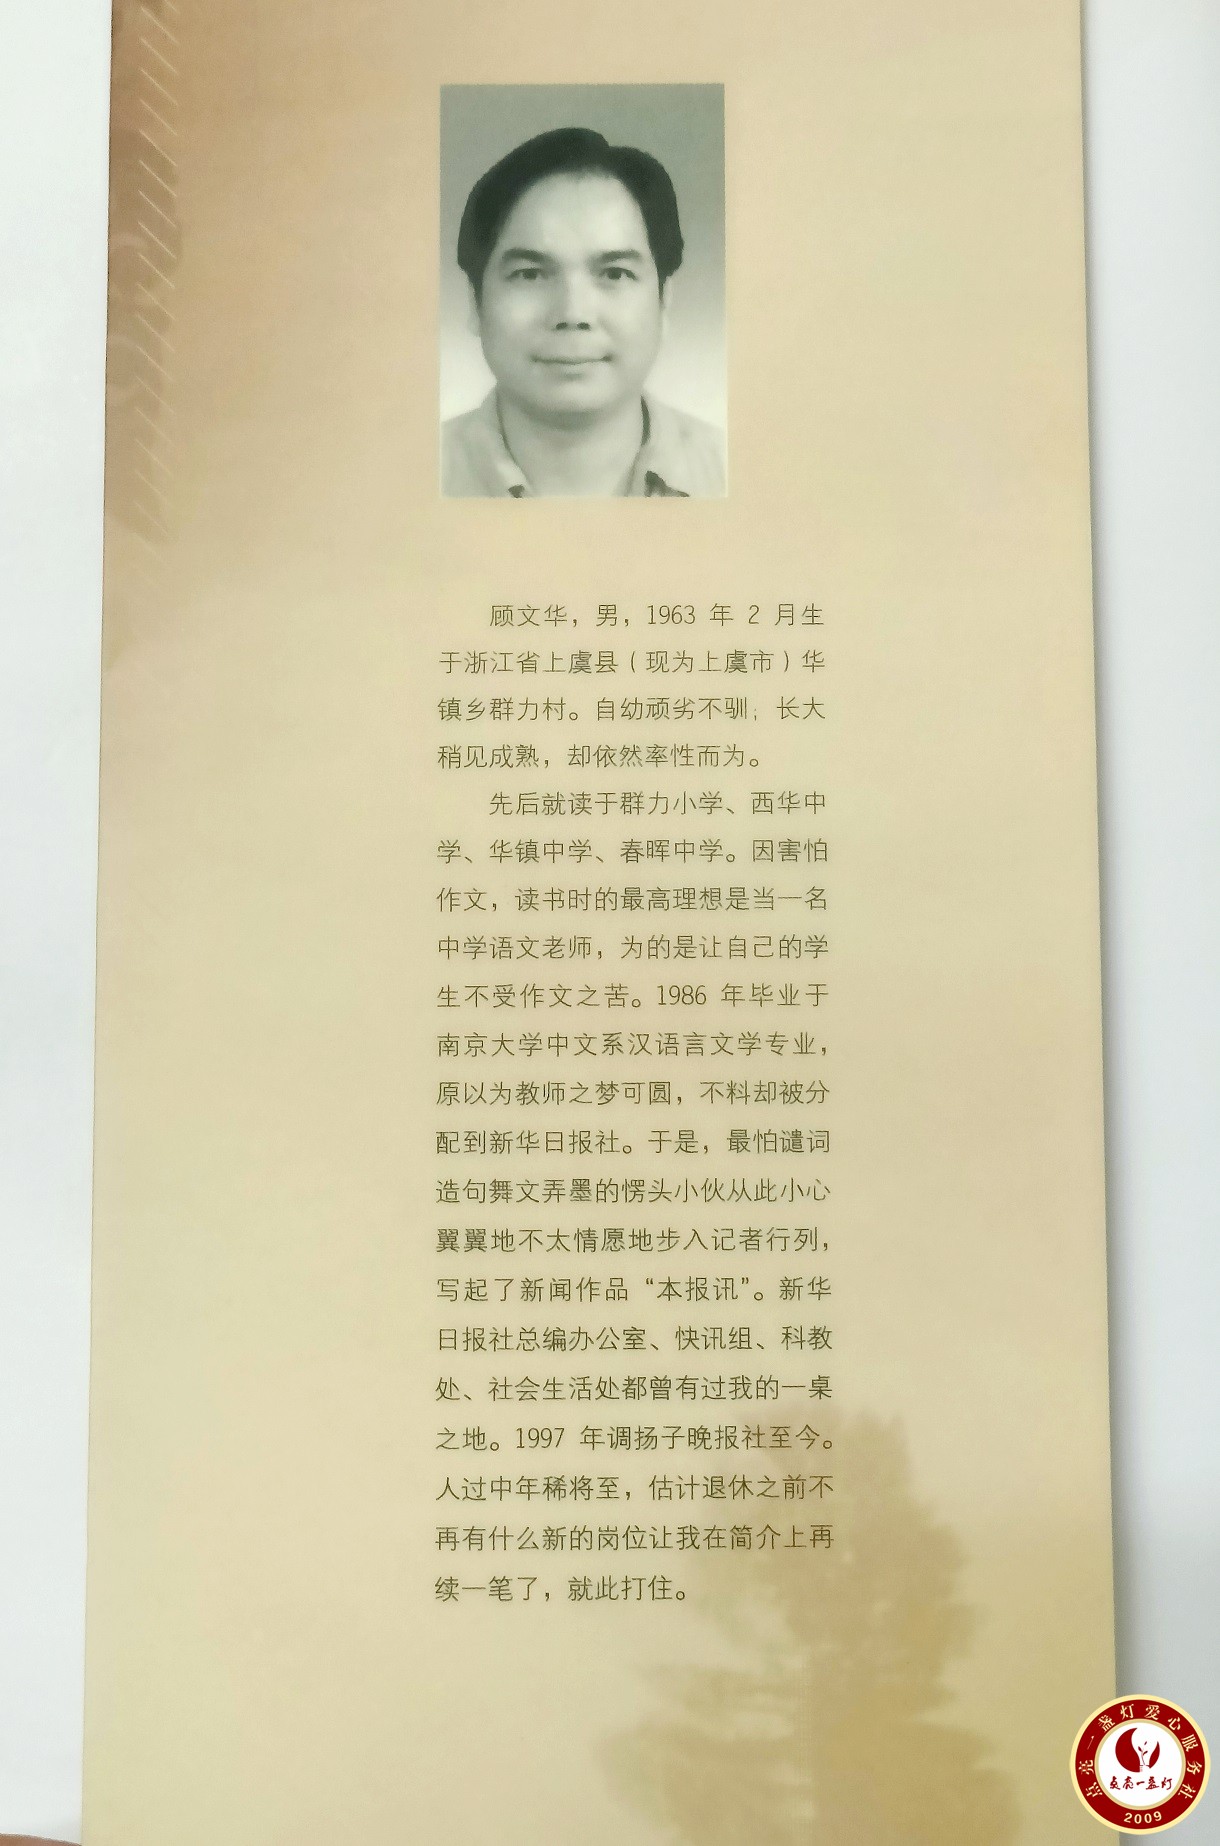 顾文华，男，1963 年 2 月生
于浙江省上虞县（现为上虞市）华
镇乡群力村。自幼顽劣不驯；长大
稍见成熟，却依然率性而为。
先后就读于群力小学、西华中
学、华镇中学、春晖中学。因害怕
作文，读书时的最高理想是当一名
中学语文老师，为的是让自己的学
生不受作文之苦。1986 年毕业于
南京大学中文系汉语言文学专业，
原以为教师之梦可圆，不料却被分
配到新华日报社。于是，最怕谴词
造句舞文弄墨的愣头小伙从此小心
翼翼地不太情愿地步入记者行列，
写起了新闻作品“本报讯”。新华
日报社总编办公室、快讯组、科教
处、社会生活处都曾有过我的一桌
之地。1997 年调扬子晚报社至今。
人过中年稀将至，估计退休之前不
再有什么新的岗位让我在简介上再
续一笔了，就此打住。
点亮一盏灯爱心服务社
点亮一盏灯
2009